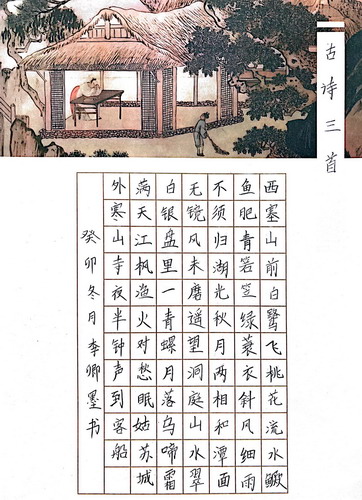 古诗三首
西塞山前白鹭飞桃花流水鳜
鱼肥青箬笠绿蓑衣斜风细雨
不须归湖光秋月两相和潭面
无镜风未磨遥望洞庭山水翠
白银盘里一青螺月落乌啼霜
满天江枫渔火对愁眠姑苏城
外寒山寺夜半钟声到客船
癸卯冬月李卿墨书